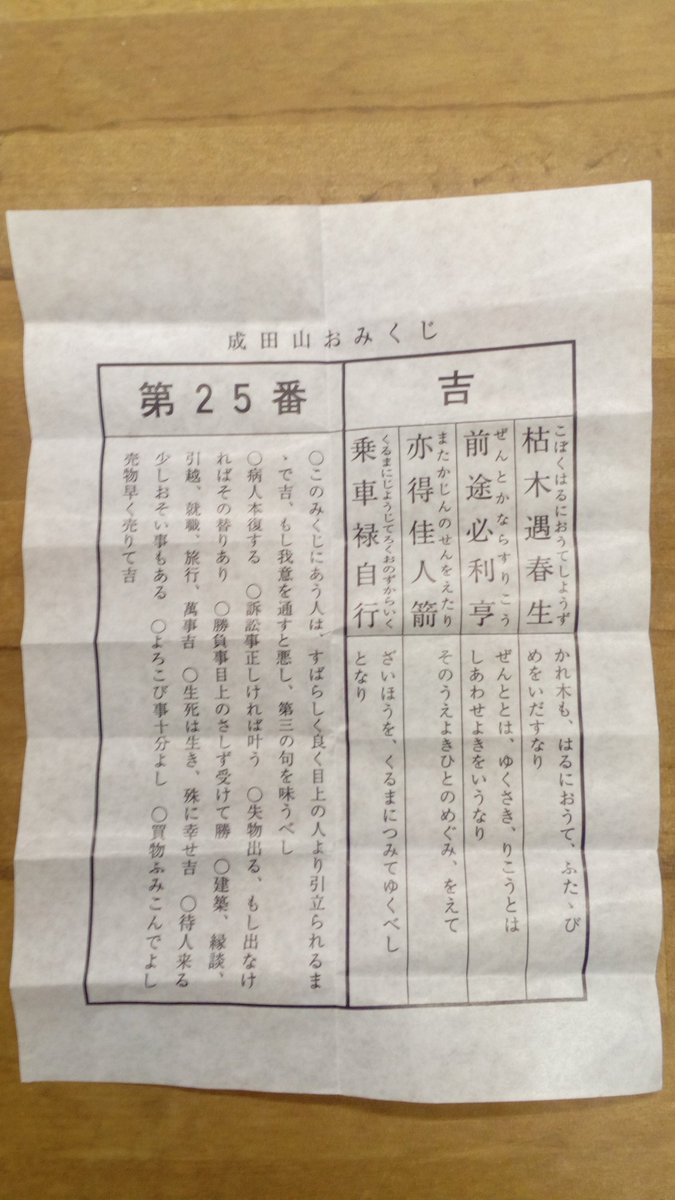 成田山おみくじ
吉
こぼくはるにおうてしょうず
枯木遇春生
かれ木も、はるにおうて、ふたゝび
めをいだすなり
ぜんとかならずりこう
前途必利亨
ぜんととは、ゆくさき、りこうとは
しあわせよきをいうなり
またかじんのせんをえたり
亦得佳人箭
そのうえよきひとのめぐみ、をえて
くるまにじようじてろくおのずからいく
乗車禄自行
ざいほうを、くるまにつみてゆくべし
となり
第25番
〇このみくじにあう人は、すばらしく良く目上の人より引立られるま
ゝで吉、もし我意を通すと悪し、第三の句を味うべし
〇病人本復する 〇訴訟事正しければ叶う 〇失物出る、もし出なけ
ればその替りあり 〇勝負事目上のさしず受けて勝 〇建築、縁談、
引越、就職、旅行、萬事吉 〇生死は生き、殊に幸せ吉 〇待人来る
少しおそい事もある 〇よろこび事十分よし 〇買物ふみこんでよし
売物早く売りて吉